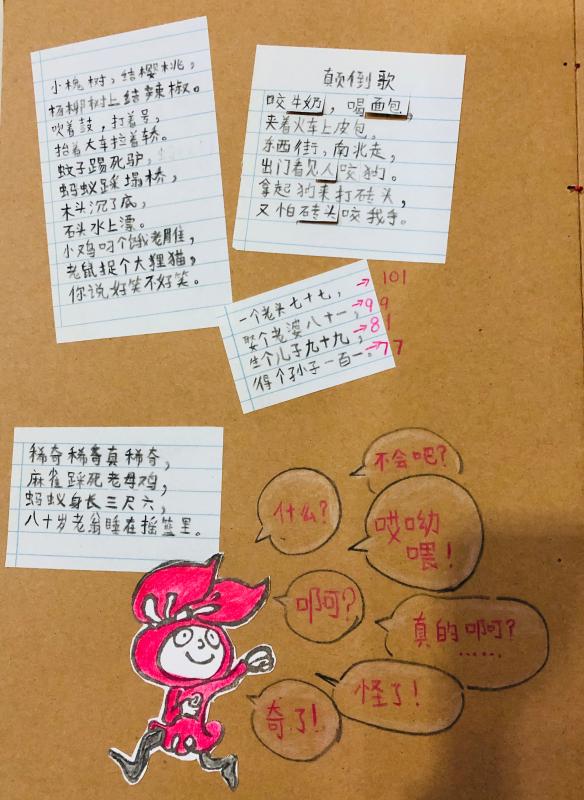 小槐树，结樱桃，
杨柳树上结辣椒。
吹着鼓，打着号，
抬着大车拉着轿。
蚊子踢死驴，
蚂蚁踩塌桥，
木头沉了底，
石头水上漂。
小鸡叼个饿老雕，
老鼠捉个大狸猫，
你说好笑不好笑。
颠倒歌
咬牛奶，喝面包，
夹着火车上皮包。
东西街，南北走，
出门看见人咬狗。
拿起狗来打砖头，
又怕砖头咬我手。
一个老头七十七，→101
娶个老婆八十一，→99
生个儿子九十九，→81
得个孙子一百一。→77
稀奇稀奇真稀奇，
麻雀踩死老母鸡，
蚂蚁身长三尺六，
八十岁老翁睡在摇篮里。
不会吧？
什么？
哎呦
喂！
啊呵？
真的啊呵？
……
怪了！
奇了！